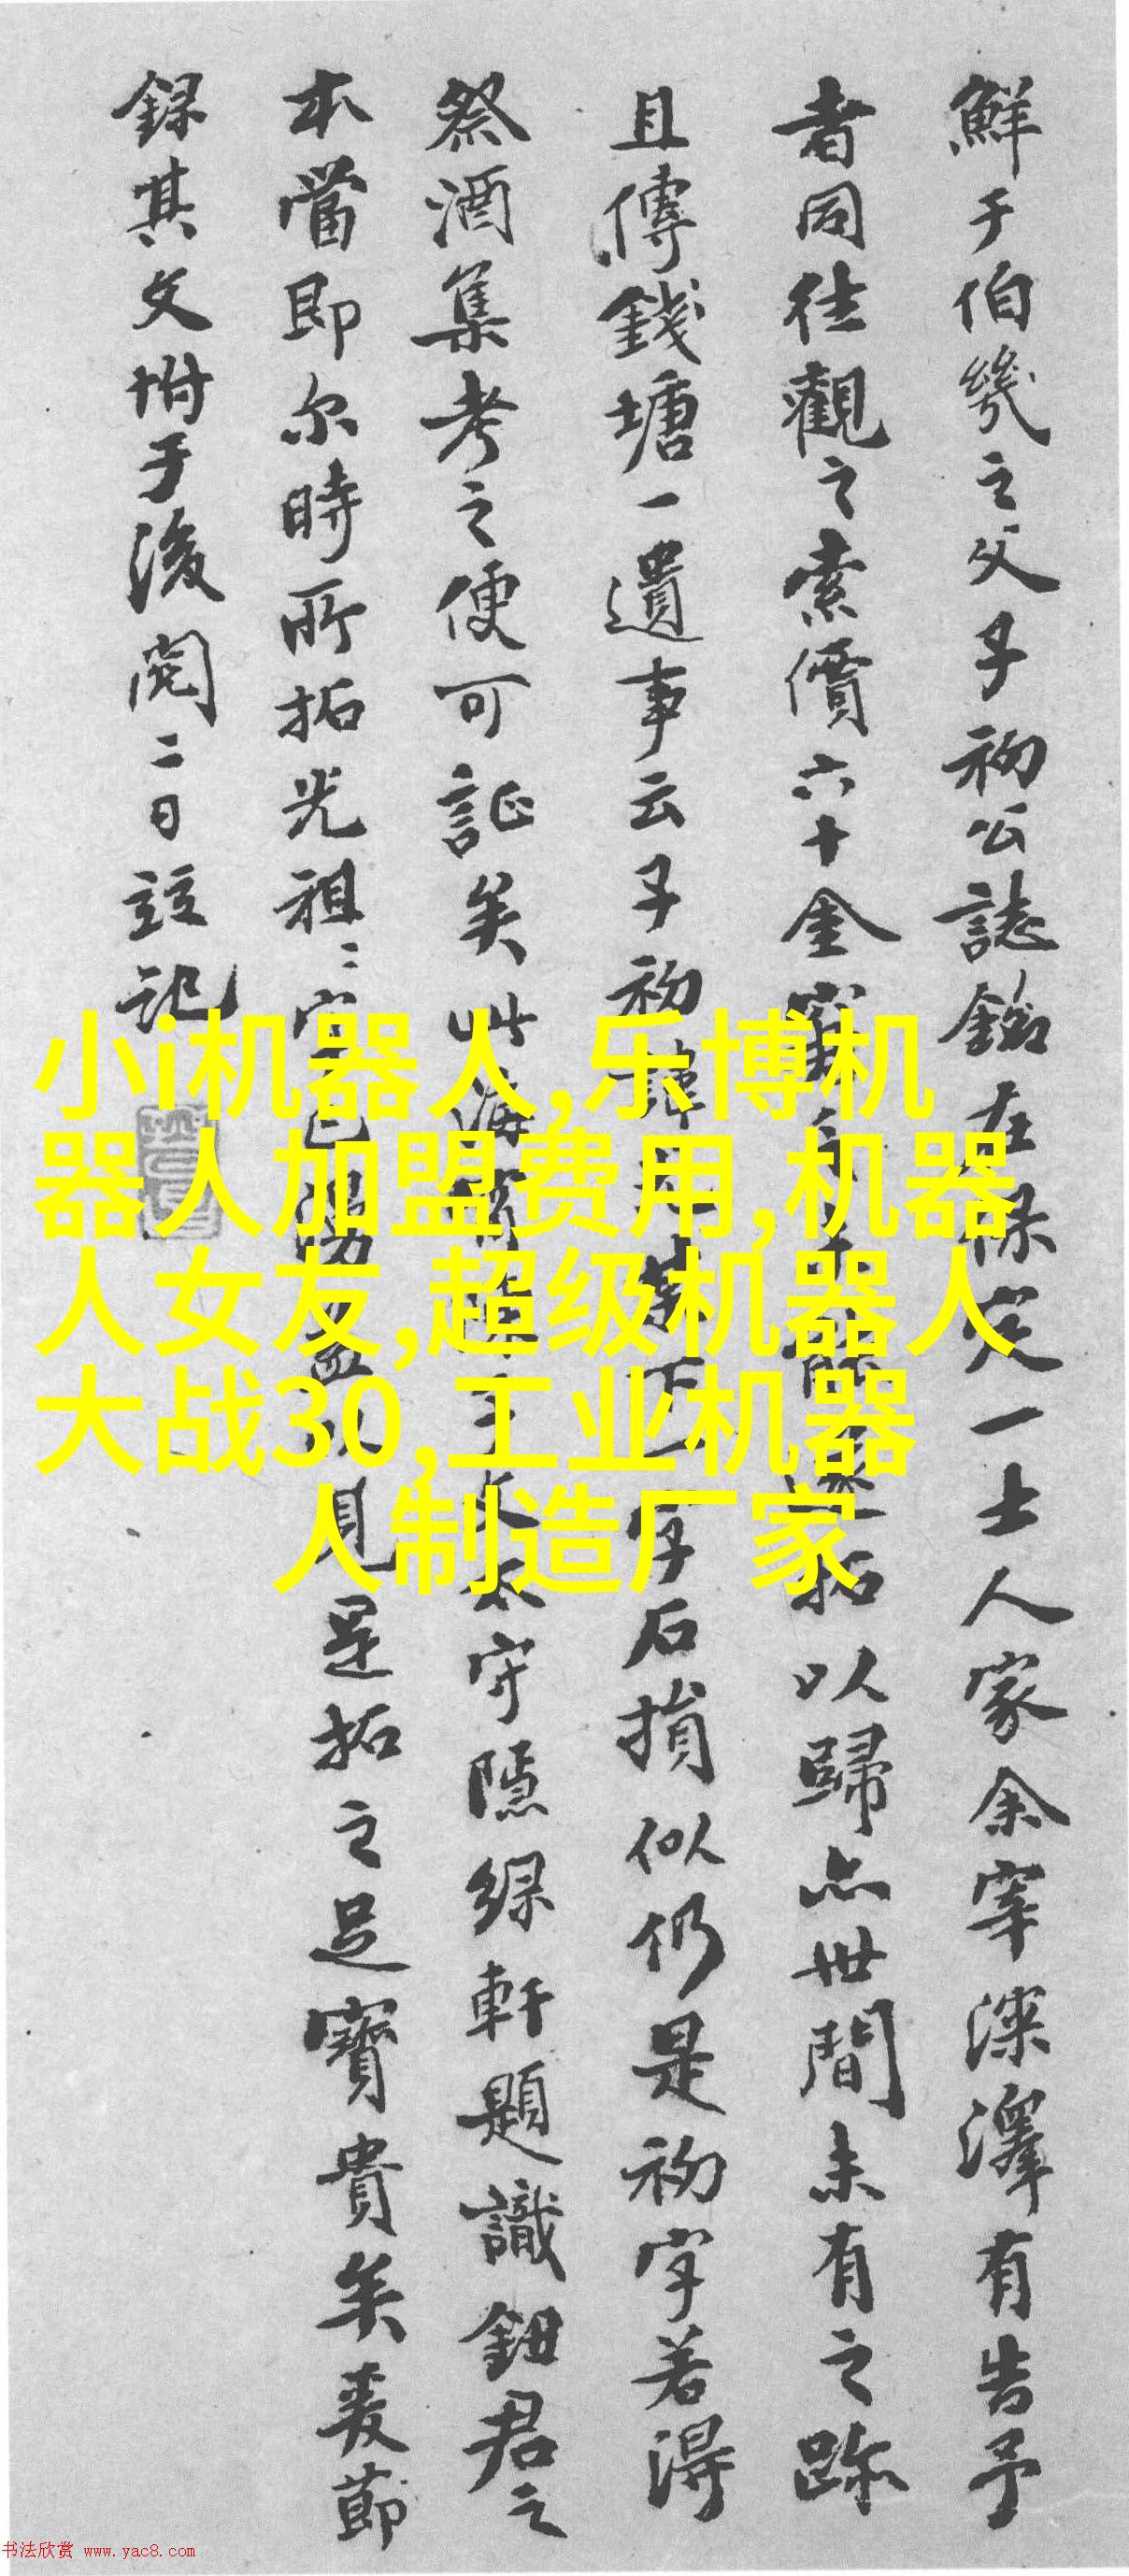 鮮于伯幾之父子初公誌銘在保定一士人家余宰深澤有告予
者同往觀之索價六十金 拓以歸亦世間未有之跡
且傳錢塘一遺事云子初諱 字石損似仍是初字若得
祭酒集考之便可証矣此 太守隱綠軒題識鈕君之
本當即尔時所拓光祖〻 見是拓之足寶貴矣爰節
錄其文坿于後閏二日竝記
小i机器人,乐博机
器人加盟费用,机器
人女友,超级机器人
大战30,工业机器
人制造厂家
书法欣赏 www.yac8.com